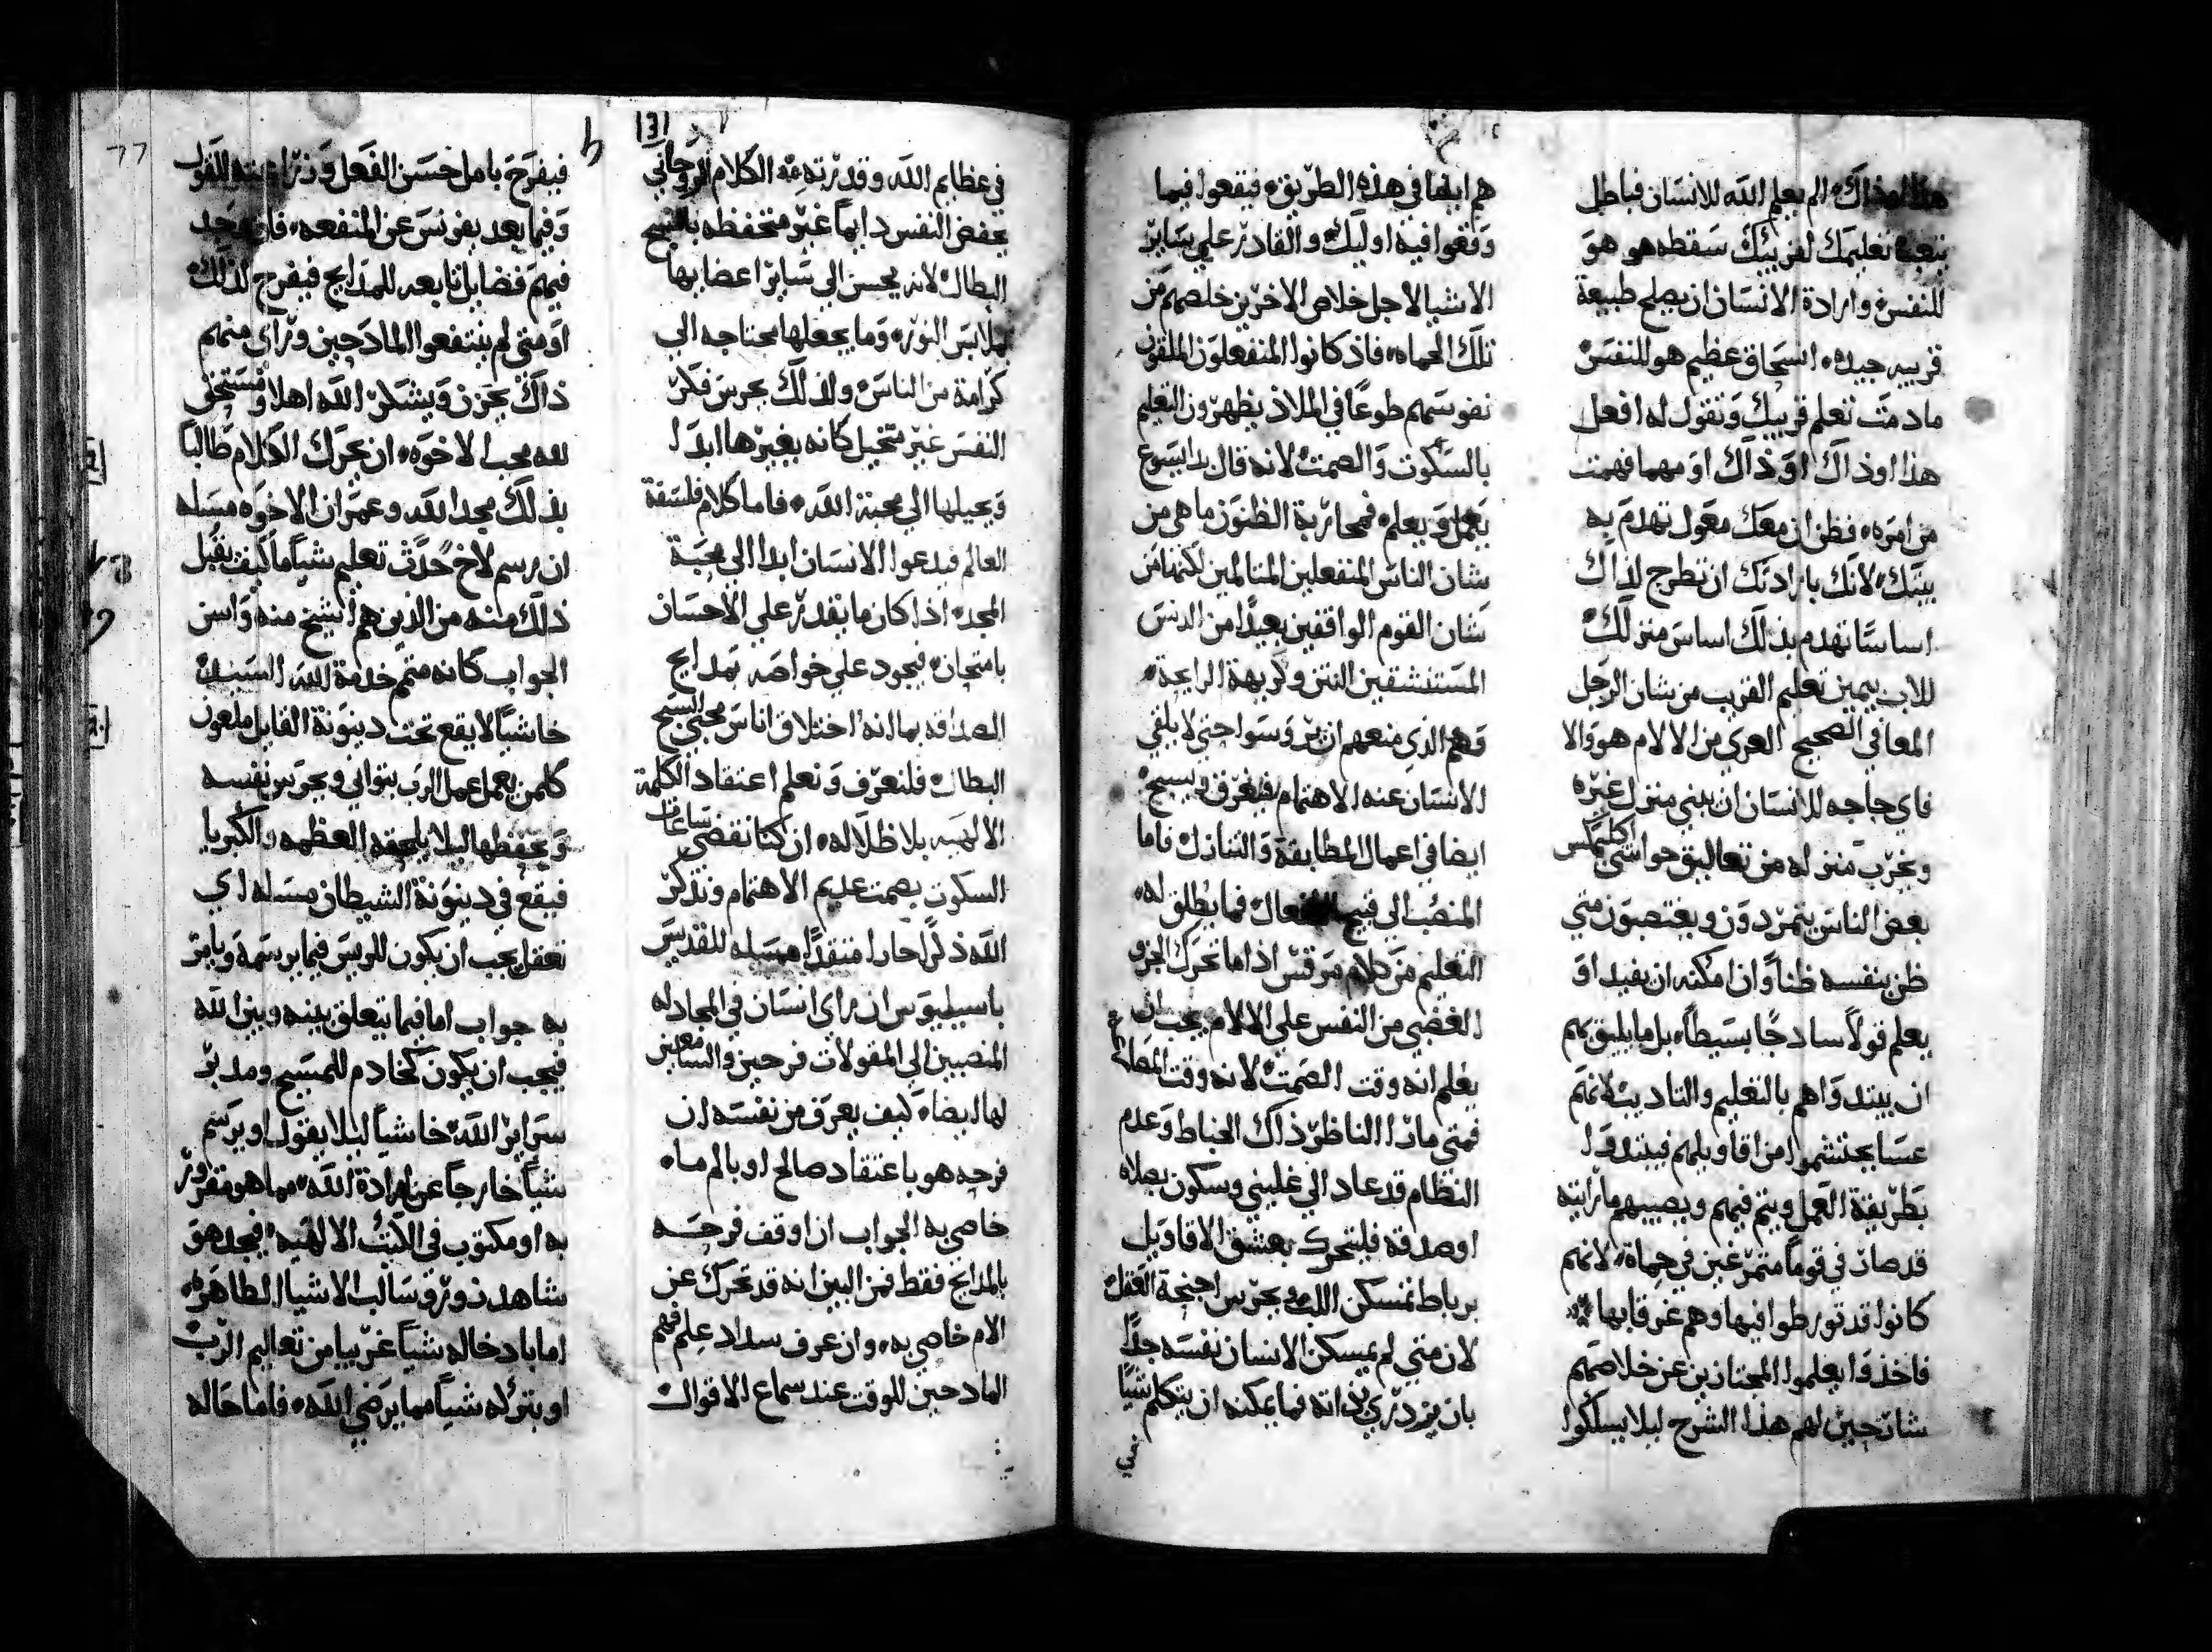 هذا او ذاك، الم يعلم الله للانسان فباطل
تتعب تعليمك لقريبك سقطه هو هو
للنفس وارادة الانسان ان يصلح طبيعة
قريبه جيده، انسحاق عظيم هو للنفس
ما دمت تعلم قريبك وتقول له افعل
هذا او ذاك او ذاك او مهما فهمت
من امره، فظن ان معك معول تهدم به
بيتك، لانك بارادتك ان تطرح لذاك
اساسا تهدم بذلك اساس منزلك
للاب بيمين تعليم القريب من شان الرجل
المعافي الصحيح العري من الالام هو والا
فاي حاجه للانسان ان يبني منزل غيره
ويخرب منزله من تعاليق حواشي اكليمكس
بعض الناس يتمردون ويغتصبون متي
ظن بنفسه ظنا وان امكنه ان يفيد او
يعلم قولا سادجا بسيطا، بل ما يليق بهم
ان يبتدوا هم بالتعليم والتاديب لانهم
عسا يحتشموا من اقاويلهم فيبتدوا
بطريقة العمل ويتم فيهم ويصيبهم ما رايته
قد صار في قوما متمرغين في حماة، لانهم
كانوا قد تورطوا فيها وهم غرقا بها
فاخذوا يعلموا المجتازين عن خلاصهم
شارحين لهم هذا الشرح ليلا يسلكوا
هم ايضا في هذه الطريق، فيقعوا فيما
وقعوا فيه اوليك، والقادر علي ساير
الاشيا لاجل خلاص الاخرين خلصهم من
تلك الحماه، فاذ كانوا المنفعلون الملقون
نفوسهم طوعا في الملاذ يظهرون التعليم
بالسكوت والصمت لانه قال بدا يسوع
يعمل ويعلم، فمحاربة الظنون ما هي من
شان الناس المنفعلين المتالمين لكنها من
شان القوم الواقفين بعيدا من الدنس
المستنشقين النتن وكريهة الرايحة،
وهم الذي منعهم ان يروسوا حتي لا يلقي
الانسان عنه الاهتمام فيغرق ويسبح
ايضا في اعمال المطابقة والتنازل فاما
المنصب الي قبيح الانفعال فما يطلق له
التعليم من كلام مرقس اذا ما تحرك الجزو
الغضبي من النفس علي الالام يجب ان
يعلم انه وقت الصمت لانه وقت المصارعة
فمتي ما را الناظر ذاك الخباط وعدم
النظام قد عاد الي غليني وسكون بصلاه
او صدقه فليتحرك بعشق الاقاويل
برباط تمسكن اللب ويحرس اجنحة العقل
لان متي لم يمسكن الانسان نفسه جدا
بان يزدري بذاته فما يمكنه ان يتكلم شيا
في عظايم الله وقدرته الكلام الروحاني
يحفض النفس دايما غير متحفظه بالسبح
البطال لانه يحسن الي ساير اعضايها
بملابس النور، وما يجعلها محتاجه الي
كرامة من الناس ولذلك يحرس فكر
النفس غير متخيل كانه يغيرها ابدا
ويحيلها الي محبة الله، فاما كلام فلسفة
العالم فيدعوا الانسان ابدا الي محبة
المجد، اذا كان ما يقدر علي الاحسان
بامتحان، فيجود علي خواصه بمدايح
الصداقه بما انه اختلاق اناس محبي السبح
البطال فلنعرف ونعلم اعتقاد الكلمة
الالهيه بلا ظلاله، ان كنا نقضي ساعات
السكوت بصمت عديم الاهتمام ونتذكر
الله ذكرا حارا متقدا مسله للقديس
باسيليوس ان راي انسان في المجادله
المنصبين الي المقولات فرحين والسامعين
لها ايضا، كيف يعرف من نفسه ان
فرحه هو باعتقاد صالح او بالم ما،
خاصي به الجواب ان اوقف فرحه
بالمدايح فقط فمن البين انه قد تحرك عن
الام خاصي به، وان عرف سداد علم فهم
المادحين للوقت عند سماع الاقوال
فيفرح بامل حسن الفعل وزراعته للقول
وفيما بعد يفرنس عن المنفعه، فان وجد
فيهم فضايل تابعه للمدايح فيفرح لذلك
او متي لم ينتفعوا المادحين وراي منهم
ذاك يحزن ويشكر الله اهلا ومستحق
لله محب الاخوه، ان يحرك الكلام طالبا
بذلك مجد الله وعمران الاخوه مسله
ان رسم لاخ حدث تعليم شيا ما كيف يقبل
ذلك منه من الذين هم اشيخ منه واسن
الجواب كانه متمم خدمة لله السيد،
خاشيا لا يقع تحت دينونة القايل ملعون
كلمن يعمل عمل الرب بتواني ويحرس نفسه
ويحفظها ليلا يلحقه العظمه والكبريا
فيقع في دينونة الشيطان مسله اي
تعقل يجب ان يكون للريس فيما يرسمه ويامر
به جواب اما فيما يتعلق بينه وبين الله
فيجب ان يكون كخادم للمسيح ومدبر
سراير الله، خاشيا ليلا يقول او يرسم
شيا خارجا عن ارادة الله، مما هو مقرور
به او مكتوب في الكتب الالهيه، فيجد هو
شاهد زور وسالب الاشيا الطاهره،
اما بادخاله شيا غريبا من تعاليم الرب
او بتركه شيا مما يرضي الله، فاما حاله